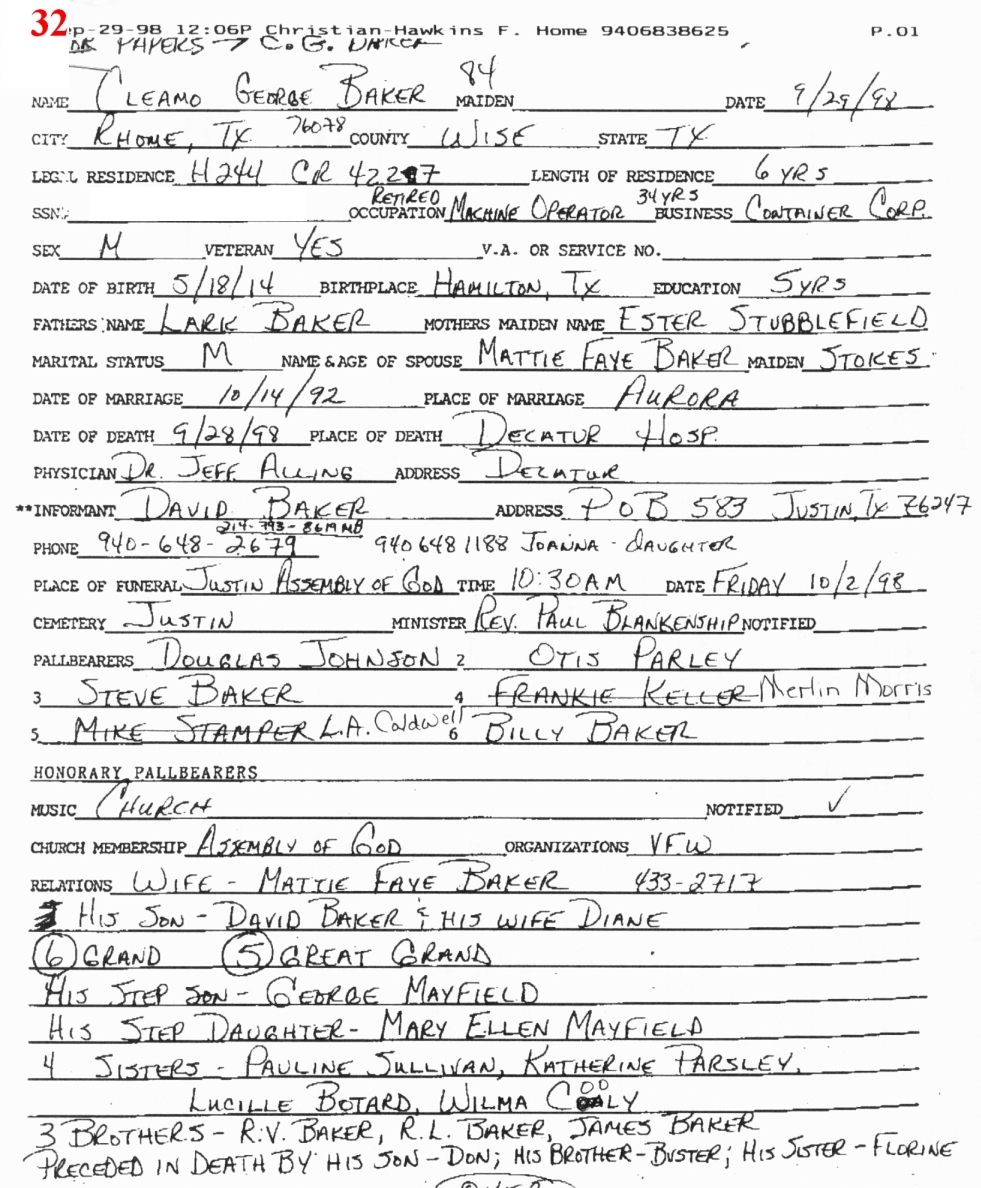 32
p-29-98 12:06P Christian-Hawkins F. Home 9406838625 P.01
PAPERS → C. G.
84
NAME CLEAMO GEORGE BAKER MAIDEN DATE 9/29/98
CITY RHOME, TX 76078 COUNTY WISE STATE TX
LEGAL RESIDENCE H244 CR 4227 LENGTH OF RESIDENCE 6 YRS
SSN: RETIRED OCCUPATION MACHINE OPERATOR 34 YRS BUSINESS CONTAINER CORP.
SEX M VETERAN YES V.A. OR SERVICE NO.
DATE OF BIRTH 5/18/14 BIRTHPLACE HAMILTON, TX EDUCATION 5 YRS
FATHERS NAME LARK BAKER MOTHERS MAIDEN NAME ESTER STUBBLEFIELD
MARITAL STATUS M NAME & AGE OF SPOUSE MATTIE FAYE BAKER MAIDEN STOKES
DATE OF MARRIAGE 10/14/92 PLACE OF MARRIAGE AURORA
DATE OF DEATH 9/28/98 PLACE OF DEATH DECATUR HOSP.
PHYSICIAN DR. JEFF ALLING ADDRESS DECATUR
**INFORMANT DAVID BAKER ADDRESS POB 583 JUSTIN, TX 76247
214-793-8619 MB
PHONE 940-648-2679 940 648 1188 JOANNA - DAUGHTER
PLACE OF FUNERAL JUSTIN ASSEMBLY OF GOD TIME 10:30 AM DATE FRIDAY 10/2/98
CEMETERY JUSTIN MINISTER REV. PAUL BLANKENSHIP NOTIFIED
PALLBEARERS DOUGLAS JOHNSON 2 OTIS PARLEY
3 STEVE BAKER 4 FRANKIE KELLER Merlin Morris
5 MIKE STAMPER L.A. Caldwell 6 BILLY BAKER
HONORARY PALLBEARERS
MUSIC CHURCH NOTIFIED ✓
CHURCH MEMBERSHIP ASSEMBLY OF GOD ORGANIZATIONS VFW
RELATIONS WIFE - MATTIE FAYE BAKER 433-2717
HIS SON - DAVID BAKER & HIS WIFE DIANE
6 GRAND 5 GREAT GRAND
HIS STEP SON - GEORGE MAYFIELD
HIS STEP DAUGHTER - MARY ELLEN MAYFIELD
4 SISTERS - PAULINE SULLIVAN, KATHERINE PARSLEY,
LUCILLE BOTARD, WILMA COOLY
3 BROTHERS - R.V. BAKER, R.L. BAKER, JAMES BAKER
PRECEDED IN DEATH BY HIS SON - DON; HIS BROTHER - BUSTER; HIS SISTER - FLORINE